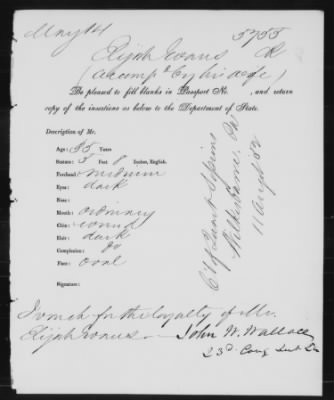 May 14
5755
Elijah Evans R
(accompd by his wife)
Be pleased to fill blanks in Passport No. , and return
copy of the insertions as below to the Department of State.
Description of Mr.
Age: 35 Years
Stature: 5 Feet 8 Inches, English.
Forehead: medium
Eyes: dark
Nose:
Mouth: ordinary
Chin: round
Hair: dark
Complexion: do
Face: oval
Signature:
Wilkesbarre, Pa
I vouch for the loyalty of Mr.
Elijah Evans.
John W. Wallace
23d Cong